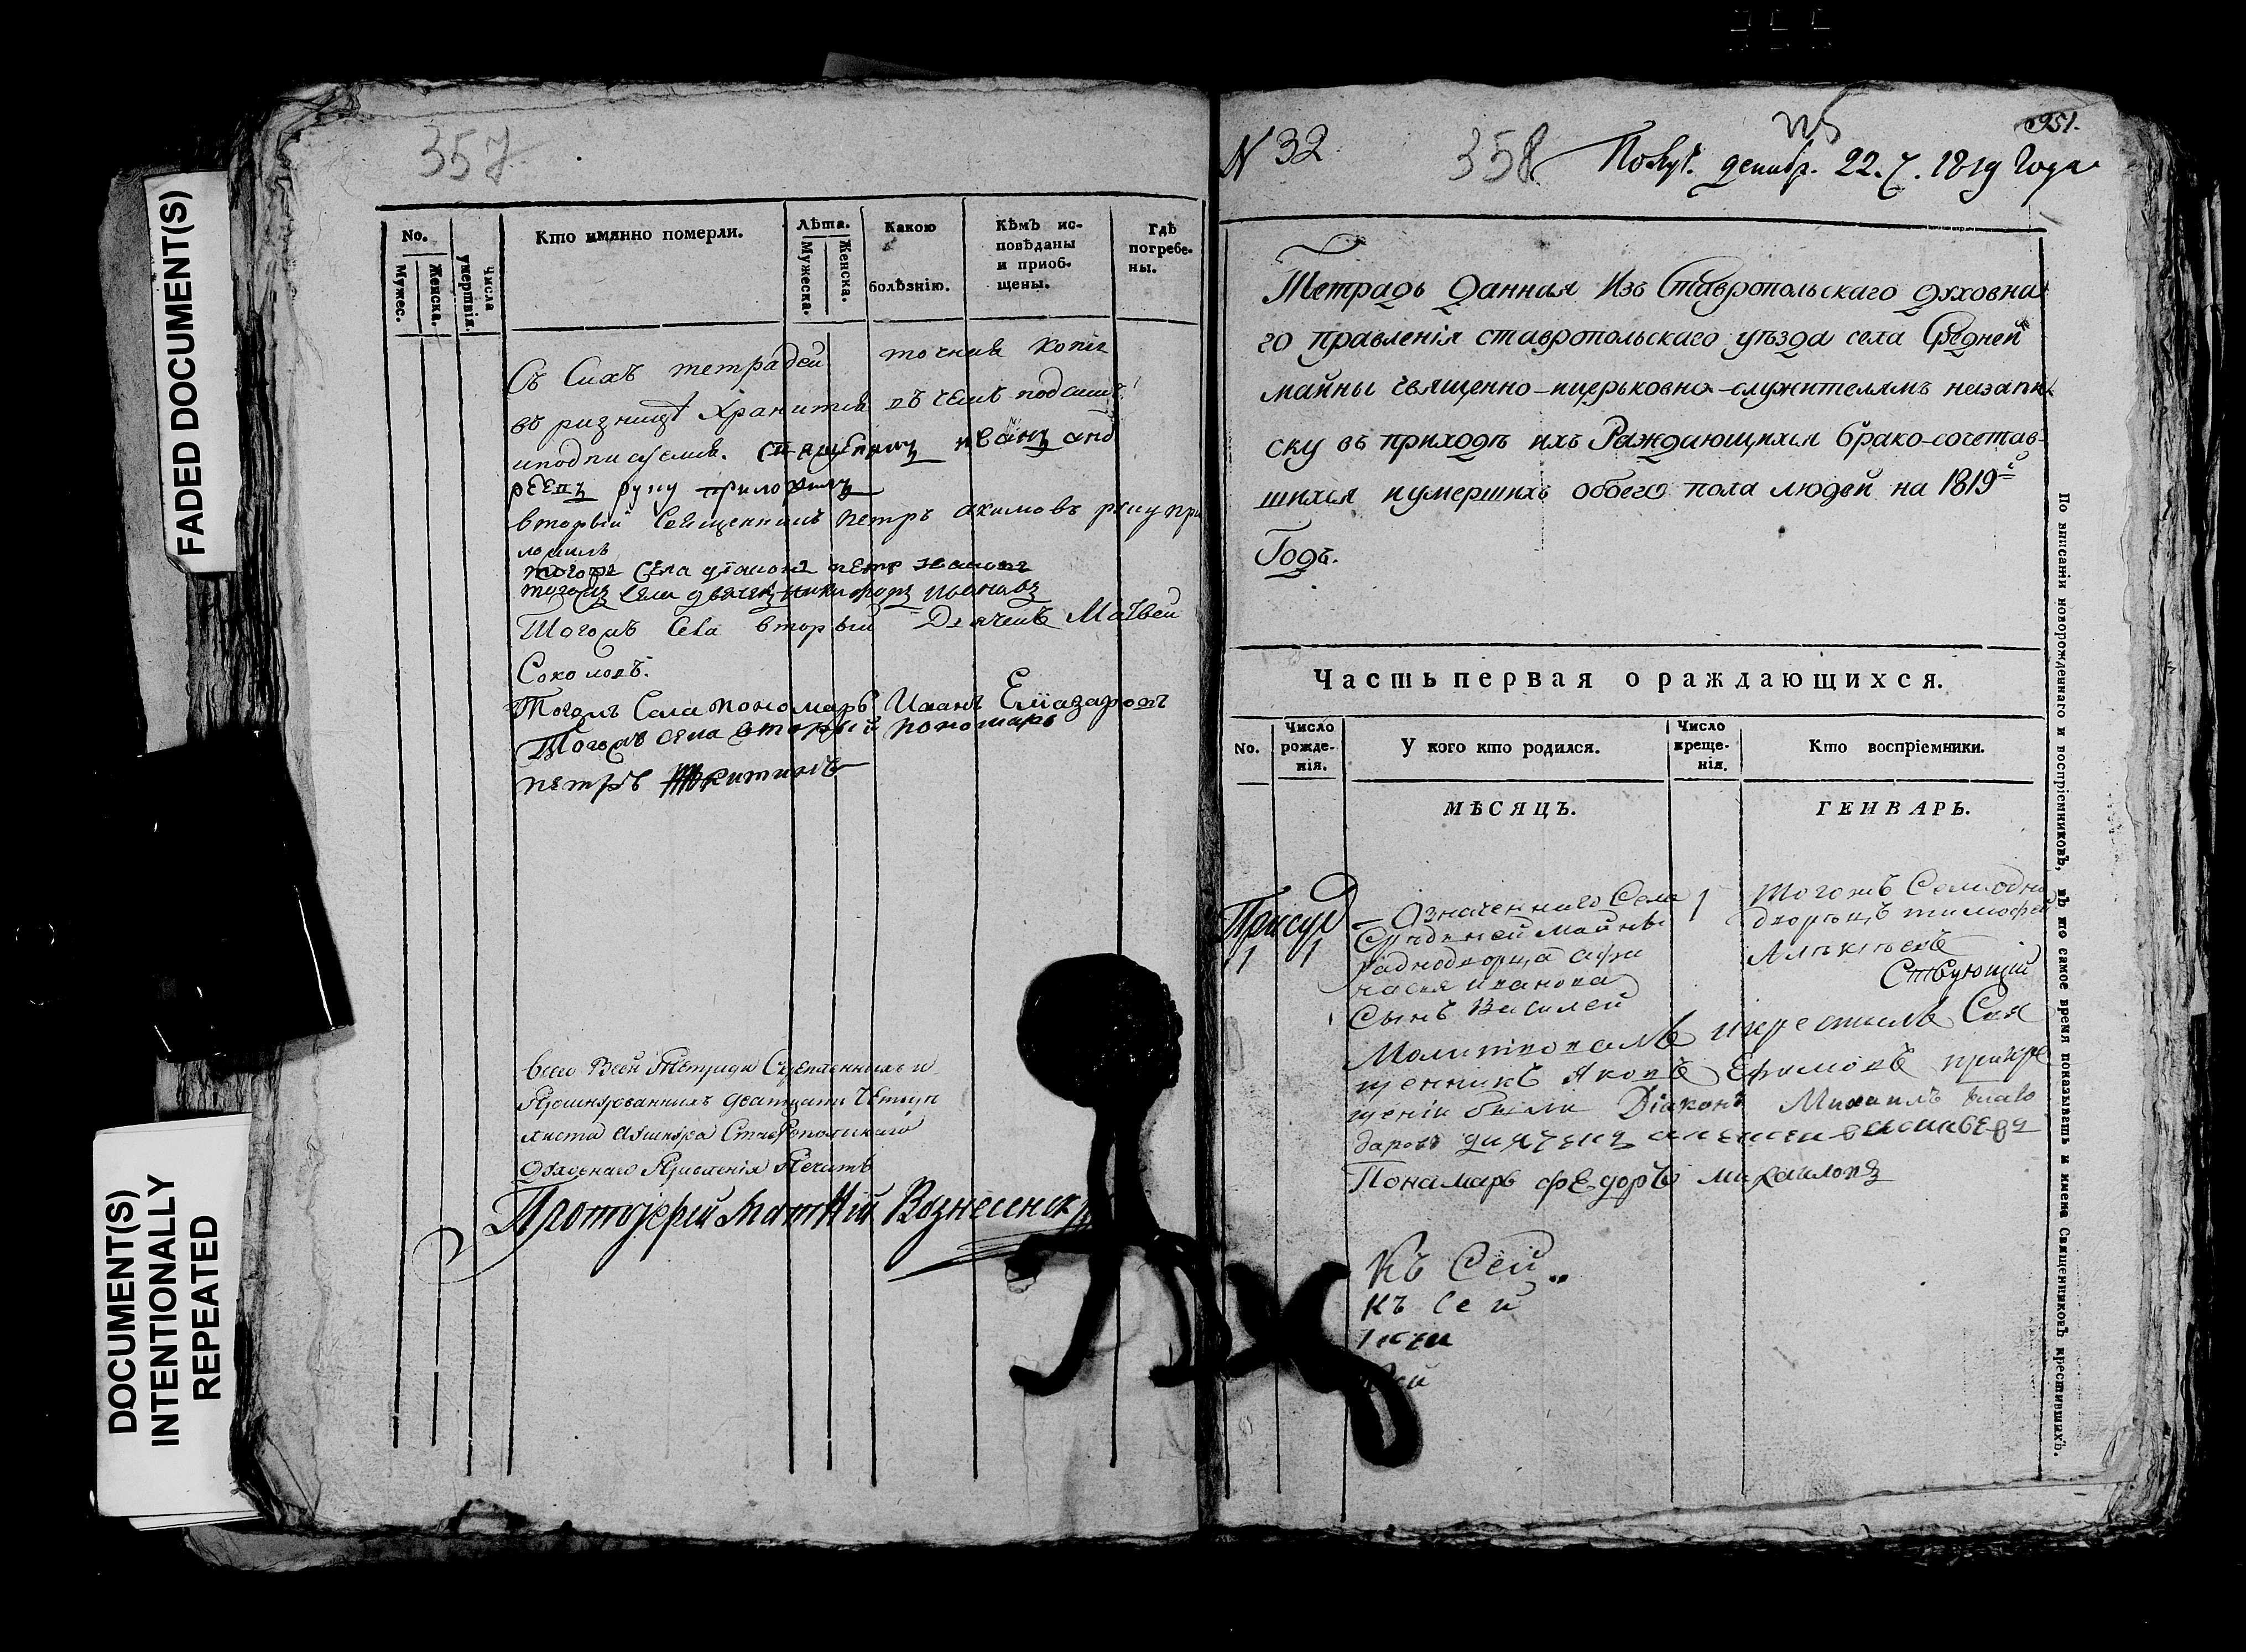 FADED DOCUMENT(S)
DOCUMENT(S)
INTENTIONALLY
REPEATED
357
No.
Мужес.
Женска.
Числа умертвія.
Кто имянно померли.
Лѣта.
Мужеска.
Женска.
Какою
болѣзнію.
Кѣмъ ис-
повѣданы
и приоб-
щены.
Гдѣ
погребе-
ны.
Съ Сихъ тетрадей точная копія
въ ризницѣ хранится въ чемъ
и подписуемся. священникъ иванъ анд
реевъ руку приложилъ
вторый Священникъ петръ акимовъ руку при
ложилъ
тогожъ села діаконъ петр иванов
тогожъ села дьячек никифоръ ивановъ
Тогожъ села вторый Дьячекъ Матвей
Соколовъ.
Тогожъ Села пономарь Иванъ Елиазаровъ
Тогожъ села вторый пономарь
петръ Никитинъ
всего Всей Тетради Скрепленныхъ и
Прошнурованныхъ дватцать Четыри
листа Ставропольскаго
Духовнаго Правленія Печать
Протоіерей Матθій Вознесенск
N 32
358
951.
Получ. декабр. 22. ч. 1819 Года
Тетрадь Данная Изъ Ставропольскаго духовна
го правленія ставропольскаго уѣзда села Средней
майны священно-ицерьковно-служителямъ назапи
ску въ приходѣ ихъ Раждающихся брако-сочетав-
шихся иумершихъ обоего пола людей на 1819й
Годъ.
Часть первая о раждающихся.
No.
Число
рожде-
нія.
У кого кто родился.
Число
креще-
нія.
Кто воспріемники.
МѢСЯЦЪ.
ГЕНВАРЬ.
Присуд
1 1
Означеннаго Села
Средней майны
однодворца афа
насья Иванова
Сынъ Василей
1
Тогожъ Села одно
дворецъ тимофей
Алѣксѣевъ
Ствующій
Молитвовалъ икрестилъ Свя
щенникъ Яковъ Ефимовъ прикре
щеніи были Діаконъ Михаилъ благо
даровъ дьячекъ алексеи васильевъ
Понамарь федоръ михаиловъ
Къ Сей
къ Сей
ксеи
По вписаніи новорожденнаго и воспріемниковъ, въ то самое время показывать и имена Священниковъ крестившихъ.